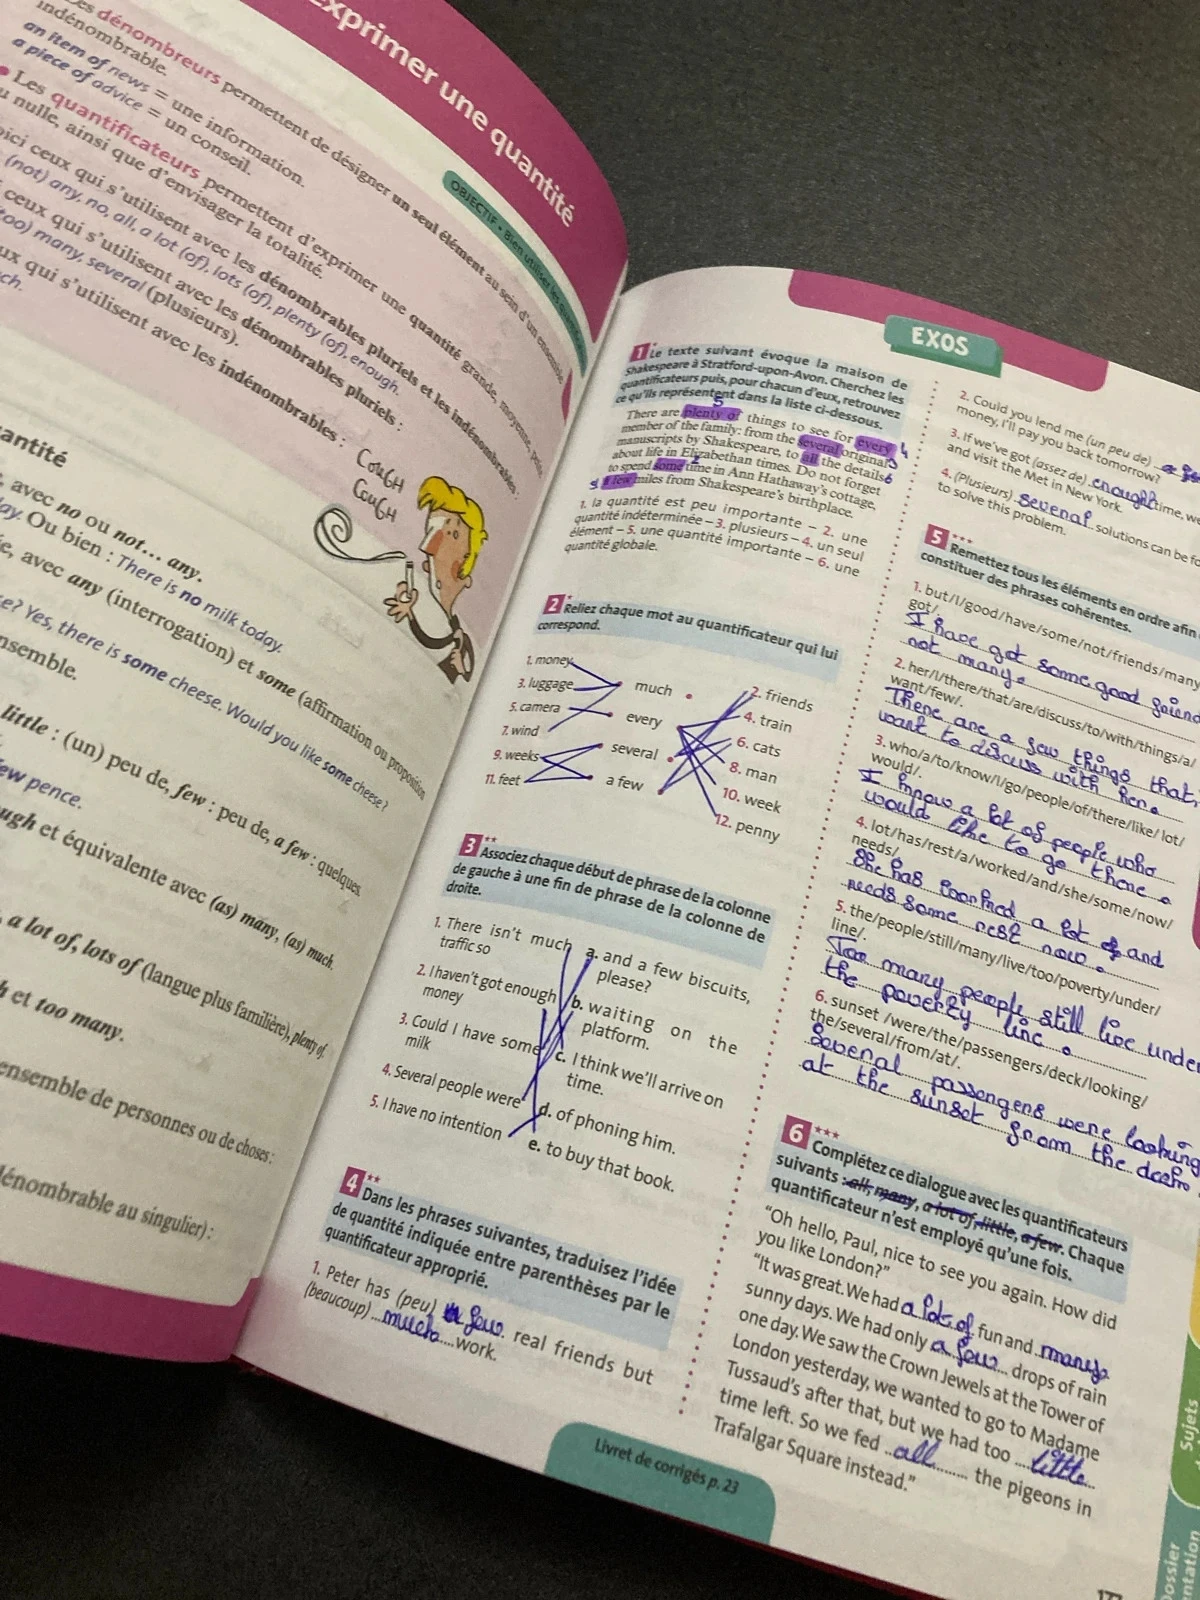 Exprimer une quantité
OBJECTIF • Bien utiliser les quantific
Les dénombreurs permettent de désigner un seul élément au sein d'un ensemble
indénombrable.
an item of news = une information.
a piece of advice = un conseil.
• Les quantificateurs permettent d'exprimer une quantité grande, moyenne, petite
u nulle, ainsi que d'envisager la totalité.
oici ceux qui s'utilisent avec les dénombrables pluriels et les indénombrables :
(not) any, no, all, a lot (of), lots (of), plenty (of), enough.
ceux qui s'utilisent avec les dénombrables pluriels :
too) many, several (plusieurs).
ux qui s'utilisent avec les indénombrables :
ch.
COUGH
COUGH
antité
, avec no ou not... any.
day. Ou bien : There is no milk today.
ée, avec any (interrogation) et some (affirmation ou proposition
se? Yes, there is some cheese. Would you like some cheese?
nsemble.
little : (un) peu de, few : peu de, a few : quelques.
few pence.
ugh et équivalente avec (as) many, (as) much.
, a lot of, lots of (langue plus familière), plenty of.
h et too many.
ensemble de personnes ou de choses :
dénombrable au singulier) :
EXOS
1 * Le texte suivant évoque la maison de
Shakespeare à Stratford-upon-Avon. Cherchez les
quantificateurs puis, pour chacun d'eux, retrouvez
ce qu'ils représentent dans la liste ci-dessous.
5
There are plenty of things to see for every 4
member of the family: from the several original 3
manuscripts by Shakespeare, to all the details 6
about life in Elizabethan times. Do not forget
2
to spend some time in Ann Hathaway's cottage,
1 a few miles from Shakespeare's birthplace.
1. la quantité est peu importante – 2. une
quantité indéterminée – 3. plusieurs – 4. un seul
élément – 5. une quantité importante – 6. une
quantité globale.
2 * Reliez chaque mot au quantificateur qui lui
correspond.
1. money
3. luggage
5. camera
7. wind
9. weeks
11. feet
much
every
several
a few
2. friends
4. train
6. cats
8. man
10. week
12. penny
3 ** Associez chaque début de phrase de la colonne
de gauche à une fin de phrase de la colonne de
droite.
1. There isn't much
traffic so
2. I haven't got enough
money
3. Could I have some
milk
4. Several people were
5. I have no intention
a. and a few biscuits,
please?
b. waiting on the
platform.
c. I think we'll arrive on
time.
d. of phoning him.
e. to buy that book.
4 ** Dans les phrases suivantes, traduisez l'idée
de quantité indiquée entre parenthèses par le
quantificateur approprié.
1. Peter has (peu) few real friends but
(beaucoup) much work.
2. Could you lend me (un peu de)
money, I'll pay you back tomorrow?
3. If we've got (assez de) enough time, we
and visit the Met in New York.
4. (Plusieurs) several solutions can be fo
to solve this problem.
5 *** Remettez tous les éléments en ordre afin
constituer des phrases cohérentes.
1. but/I/good/have/some/not/friends/many
got/.
I have got some good friend
not many.
2. her/I/there/that/are/discuss/to/with/things/a/
want/few/.
There are a few things that
want to discuss with her.
3. who/a/to/know/I/go/people/of/there/like/lot/
would/.
I know a lot of people who
would like to go there.
4. lot/has/rest/a/worked/and/she/some/now/
needs/.
She has worked a lot and
needs some rest now.
5. the/people/still/many/live/too/poverty/under/
line/.
Too many people still live under
the poverty line.
6. sunset /were/the/passengers/deck/looking/
the/several/from/at/.
Several passengers were looking
at the sunset from the deck.
6 *** Complétez ce dialogue avec les quantificateurs
suivants : all, many, a lot of, little, a few. Chaque
quantificateur n'est employé qu'une fois.
"Oh hello, Paul, nice to see you again. How did
you like London?"
"It was great. We had a lot of fun and many
sunny days. We had only a few drops of rain
one day. We saw the Crown Jewels at the Tower of
London yesterday, we wanted to go to Madame
Tussaud's after that, but we had too little
time left. So we fed all the pigeons in
Trafalgar Square instead."
Livret de corrigés p. 23
Sujets